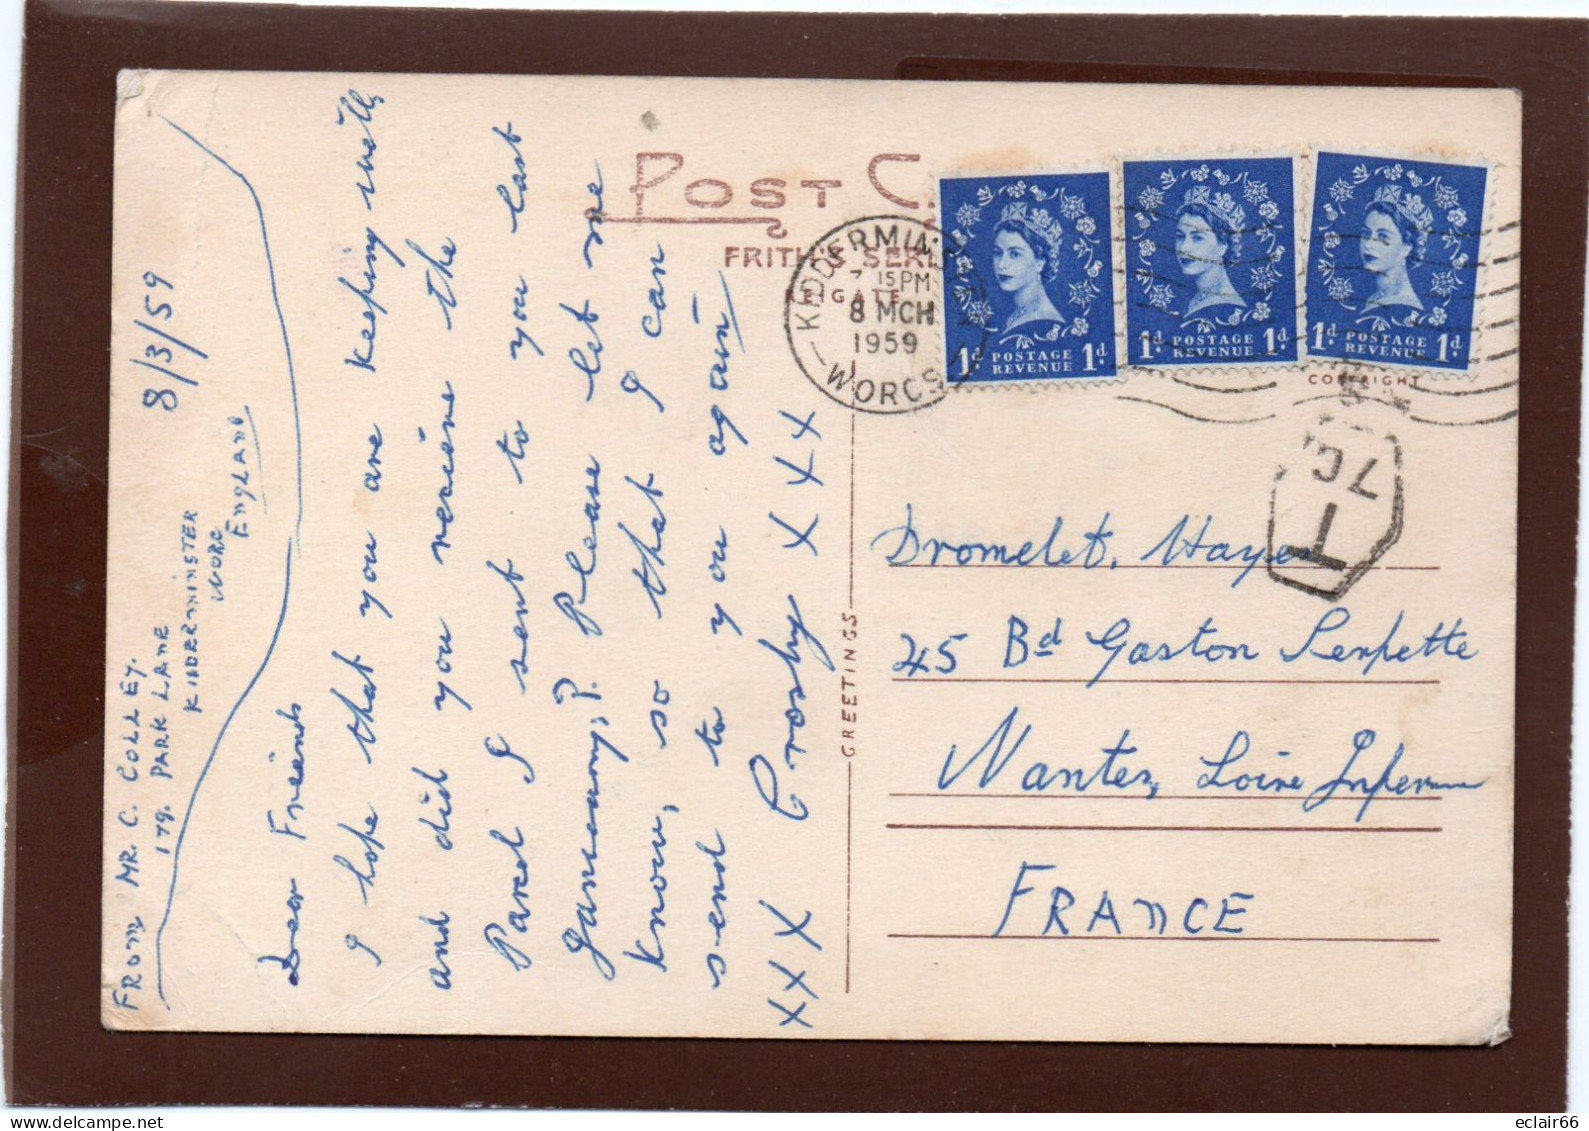 From MR. C. COLLEY.
179. PARK LANE
KIDDERMINSTER
WORC
ENGLAND
8/3/59
Dear Friends
I hope that you are keeping well,
and did you receive the
Parcel I sent to you last
January, P. P. Please let me
know, so that I can
send to you again
xxx Crosby xxxx
POST C
FRITH'S SERI
REIGATE
COPYRIGHT
GREETINGS
KIDDERMINSTER
7 15 PM
8 MCH
1959
WORCS
1d POSTAGE REVENUE 1d
1d POSTAGE REVENUE 1d
1d POSTAGE REVENUE 1d
T
Dromelet, Hayer
45 Bd Gaston Serpette
Nantes, Loire Inferm
FRANCE
eclair66